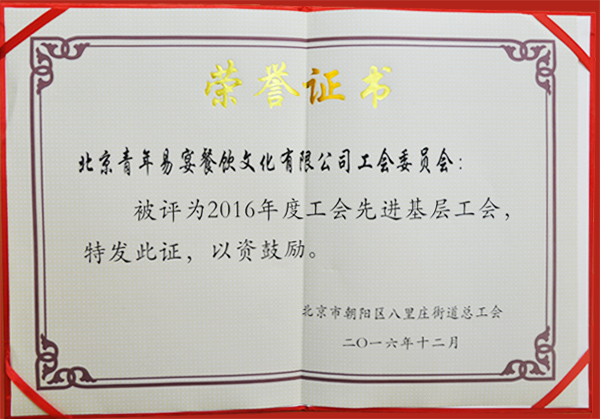 荣誉证书
北京青年易宴餐饮文化有限公司工会委员会：
被评为2016年度工会先进基层工会，
特发此证，以资鼓励。
北京市朝阳区八里庄街道总工会
二〇一六年十二月